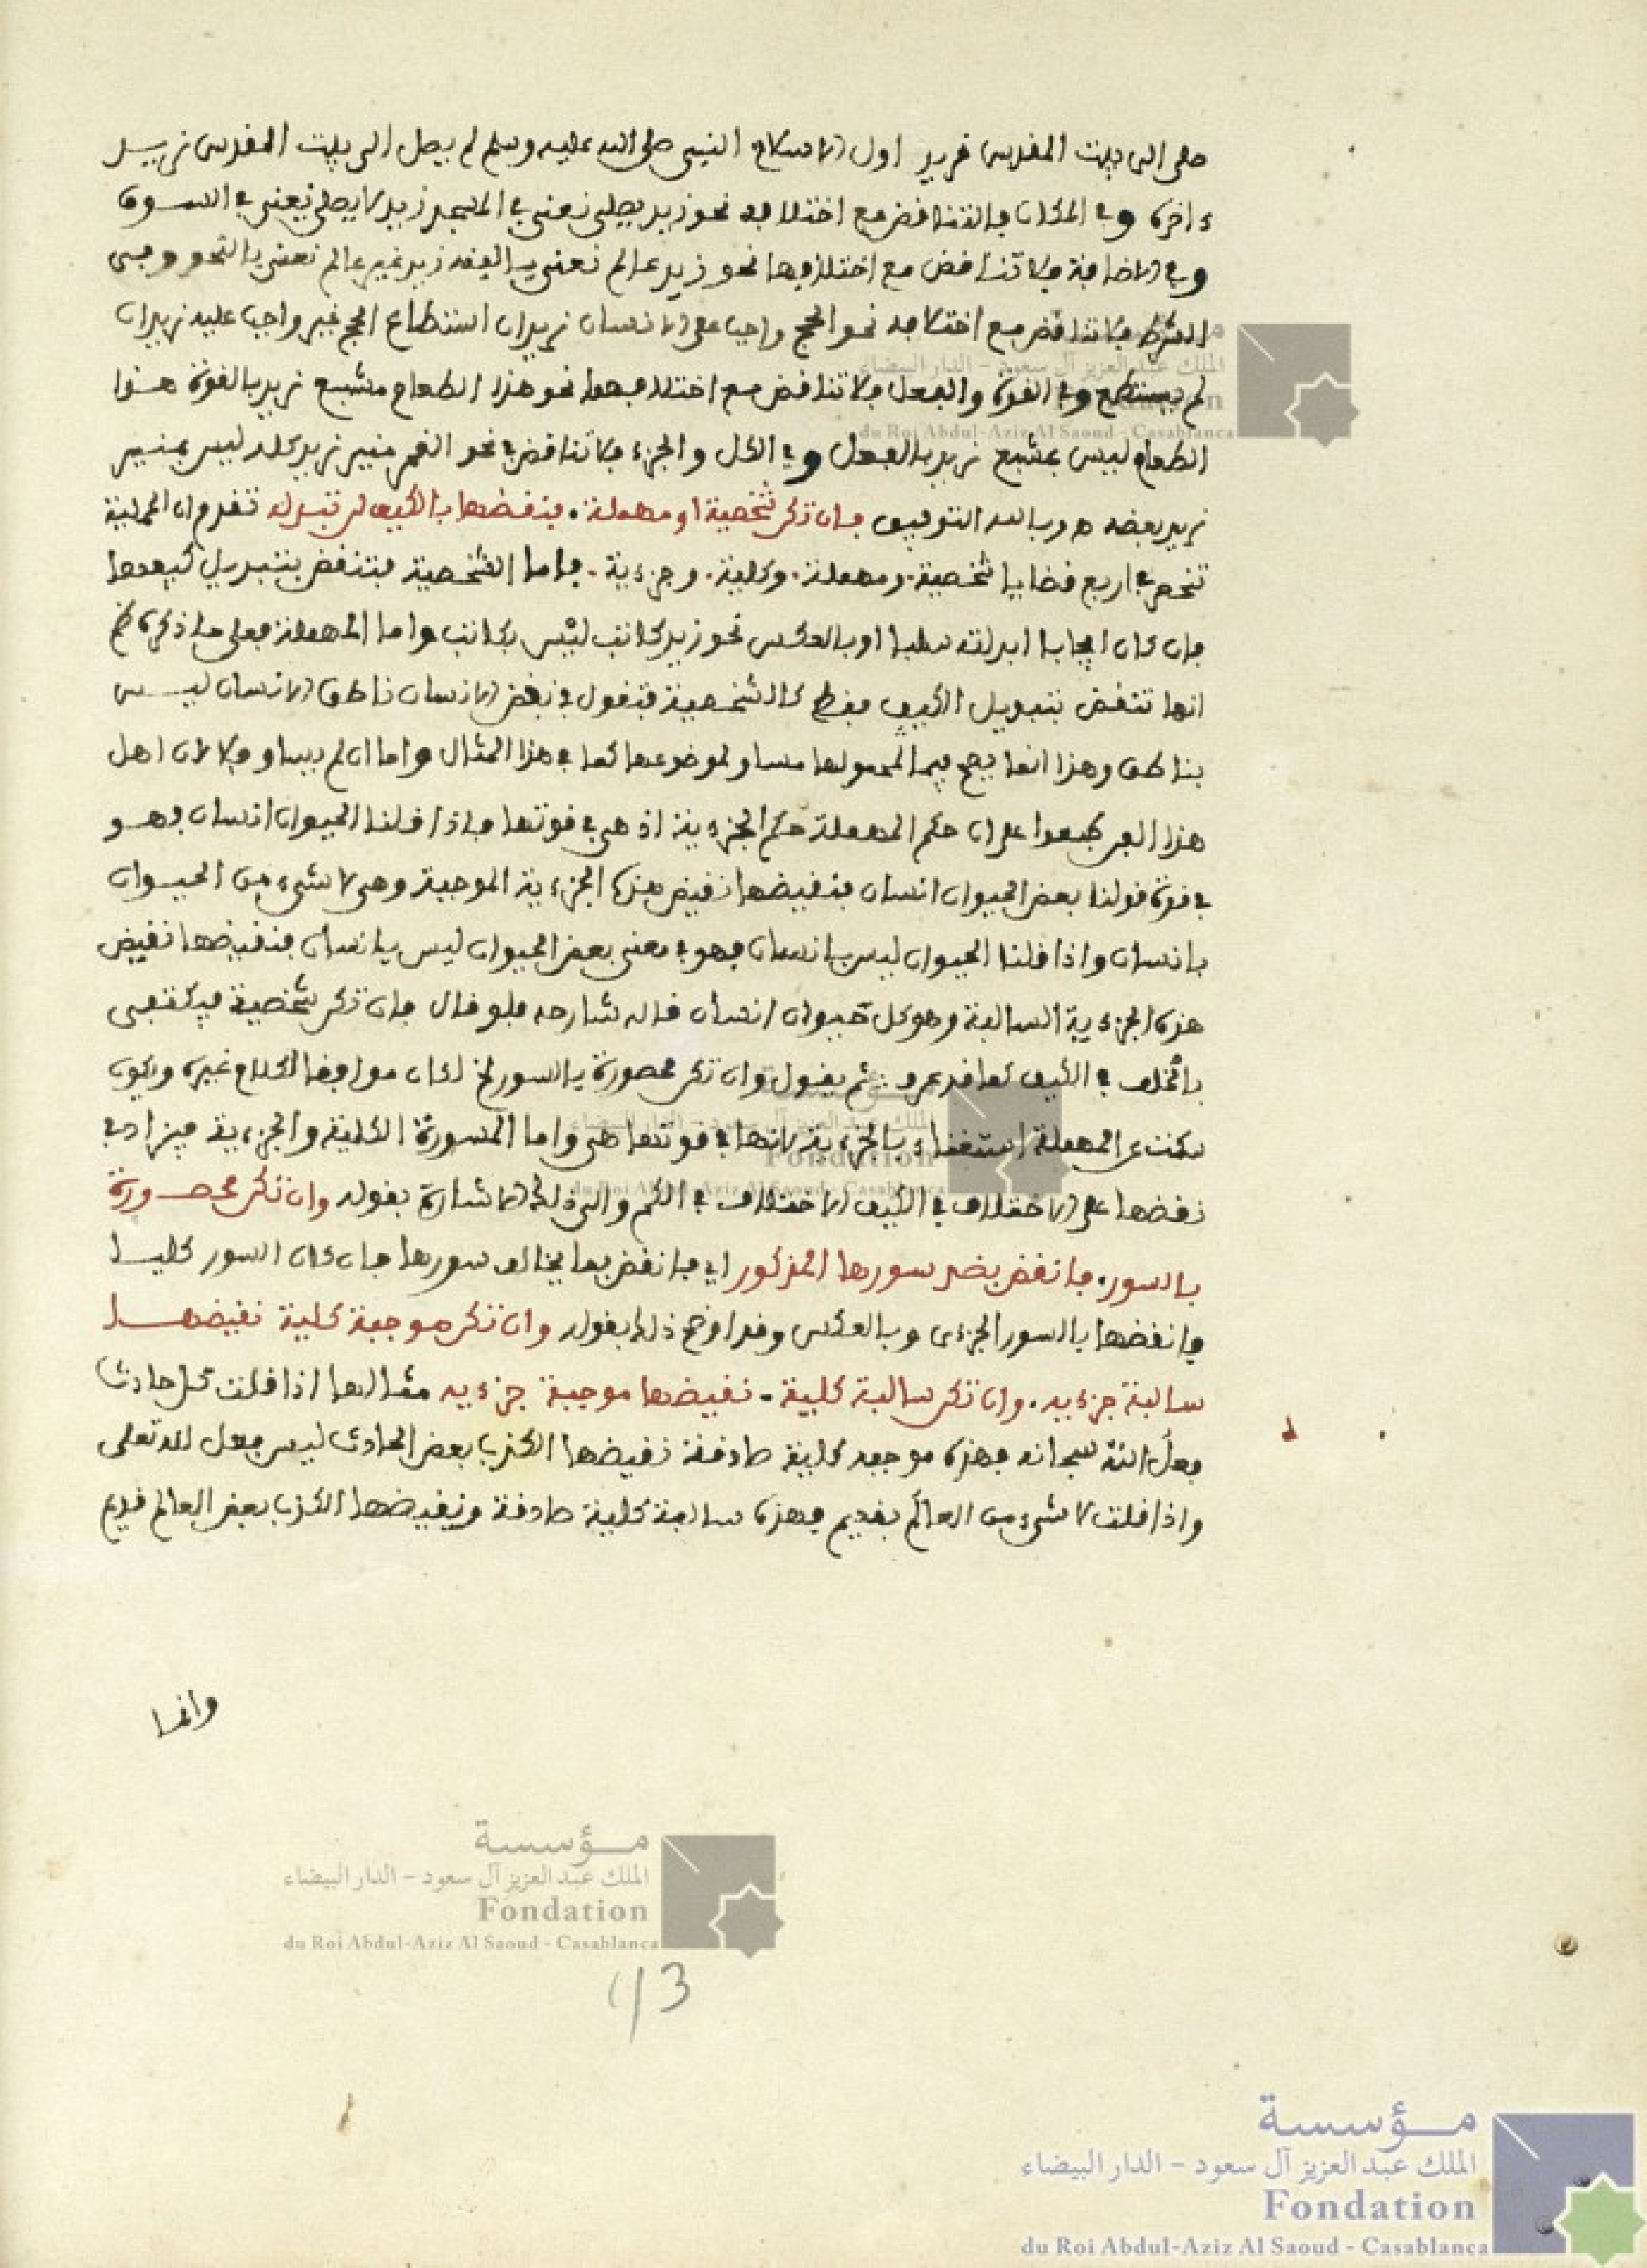 صلى الى بيت المقدس نريد اول الاسلام النبي صلى الله عليه وسلم لم يصل الى بيت المقدس نريد
ءاخره وفي المكان فلا تناقض مع اختلافه نحو زيد يصلي نعني في المسجد زيد لا يصلي نعني في السوق
وفي الاضافة فلا تناقض مع اختلافها نحو زيد عالم نعني بالفقه زيد غير عالم نعني بالنحو وفي
الشرط فلا تناقض مع اختلافه نحو الحج واجب على الانسان نريد ان استطاع الحج غير واجب عليه نريد ان
لم يستطع وفي القوة والفعل فلا تناقض مع اختلافهما نحو هذا الطعام مشبع نريد بالقوة هذا
الطعام ليس بمشبع نريد بالفعل وفي الكل والجزء فلا تناقض في نحو القمر منير نريد كله ليس بمنير
نريد بعضه وبالله التوفيق فان تكن شخصية او مهملة . فنقضها بالكيف ان تبدله تقدم ان الحملية
تنحصر في اربع قضايا شخصية . ومهملة . وكلية . وجزءية . فاما الشخصية فتنقض بتبديل كيفها
فان كان ايجابا ابدلته سلبا او بالعكس نحو زيد كاتب ليس بكاتب واما المهملة فعلى ما ذكره
انها تنقض بتبديل الكيف فقط كالشخصية فتقول في نقض الانسان ناطق الانسان ليس
بناطق وهذا انما يصح فيما محمولها مساو لموضوعها كما في هذا المثال واما ان لم يساو فلا لان اهل
هذا الفن على ان حكم المهملة حكم الجزءية اذ هي في قوتها فاذا قلنا الحيوان انسان فهو
في قوة قولنا بعض الحيوان انسان فنقيضها نقيض هذه الجزءية الموجبة وهي لا شيء من الحيوان
بانسان واذا قلنا الحيوان ليس بانسان فهو في معنى بعض الحيوان ليس بانسان فنقيضها نقيض
هذه الجزءية السالبة وهو كل حيوان انسان قاله شارحه فلو قال فان تكن شخصية فيكتفى
بالخلف في الكيف كما قد عرف ثم يقول وان تكن محصورة بالسور الخ لكان موافقا لكلام غيره ويكون
سكت عن المهملة استغناء بالجزءية لانها في قوتها هي واما المسورة الكلية والجزءية فيزاد في
نقضها على الاختلاف في الكيف الاختلاف في الكم والى ذلك الاشارة بقوله وان تكن محصورة
بالسور . فانقض بضد سورها المذكور اي فانقض بما يخالف سورها فان كان السور كليا
فانقضها بالسور الجزءي وبالعكس وقد اوضح ذلك بقوله وان تكن موجبة كلية نقيضها
سالبة جزءيه . وان تكن سالبة كلية . نقيضها موجبة جزءيه مثالها اذا قلت كل حادث
فعل الله سبحانه فهذه موجبه كلية صادقة نقيضها الكذب بعض الحادث ليس فعل الله تعلى
واذا قلت لا شيء من العالم بقديم فهذه سالبة كلية صادقة ونقيضها الكذب بعض العالم قديم
وانما
مؤسسة
الملك عبد العزيز آل سعود - الدار البيضاء
Fondation
du Roi Abdul-Aziz Al Saoud - Casablanca
مؤسسة
الملك عبد العزيز آل سعود - الدار البيضاء
Fondation
du Roi Abdul-Aziz Al Saoud - Casablanca